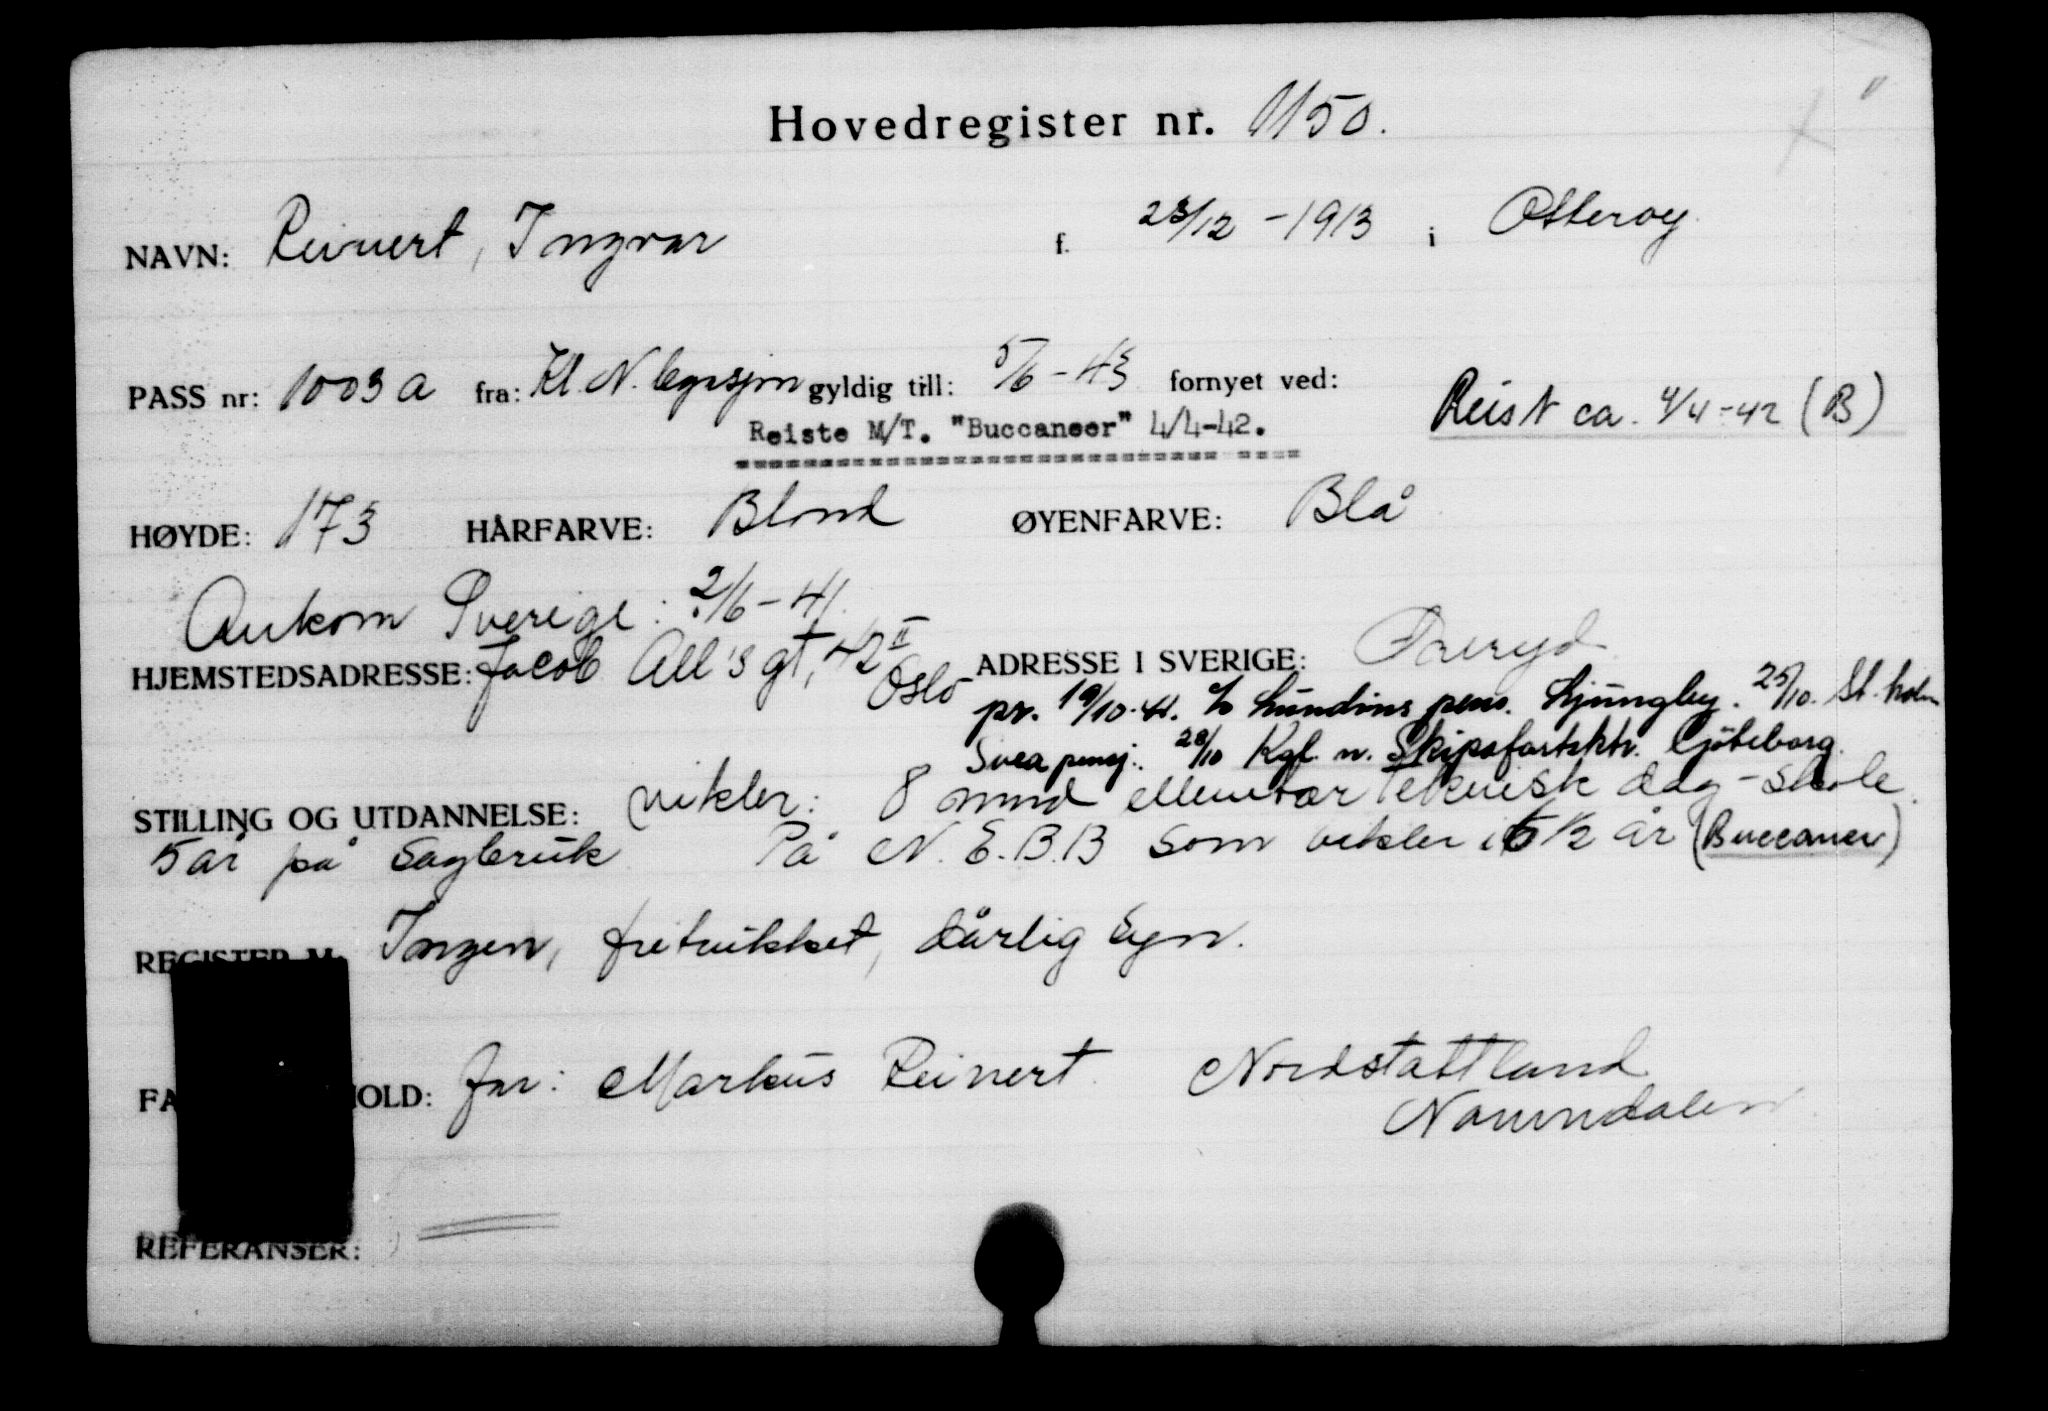 Hovedregister nr. 1150.
NAVN: Reinert, Ingvar f. 23/12 - 1913 i Otterøy
PASS nr: 1003 a fra: Kl. N. legasjon gyldig till: 5/6 - 43 fornyet ved:
Reist ca. 4/4-42 (B)
Reiste M/T. "Buccaneer" 4/4-42.
HØYDE: 173 HÅRFARVE: Blond ØYENFARVE: Blå
Ankom Sverige: 2/6 - 41.
HJEMSTEDSADRESSE: Jacob All's gt, 42 II Oslo
ADRESSE I SVERIGE: Öreryd
pr. 19/10-41. c/o Lundins pens. Ljungby. 25/10. St.holm
Svea pensj. 28/10 Kgl. n. Skipsfartsktr. Göteborg.
STILLING OG UTDANNELSE: vikler: 8 mnd ellementær teknisk dag-skole.
5 år på Sagbruk På N.E.B.B som vikler i 5 1/2 år (Buccaneer)
REGISTER M. Ingen, fritvikket, dårlig Syn.
FA HOLD: far: Markus Reinert. Nordstattland
Namndalen.
REFERANSER: